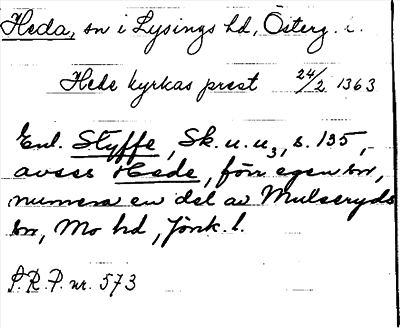 Heda, sn i Lysings hd, Österg. l.
Hede kyrkas prest 24/2 1363
Enl. Styffe, Sk. u. u3, s. 195,
avses Hede, förr egen sn,
numera en del av Mulseryds
sn, Mo hd, Jönk. l.
S.R.P. nr. 573